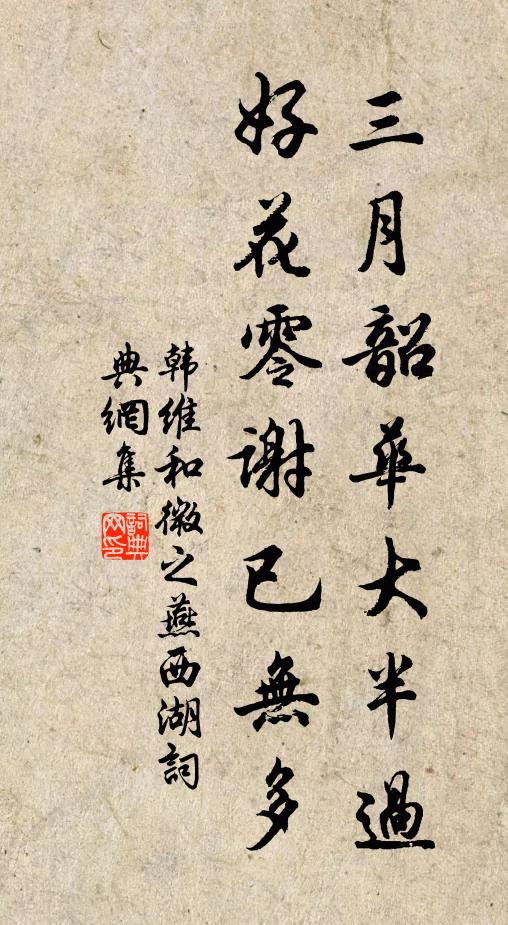 三月韶華大半過
好花零謝已無多
韩维和微之燕西湖詞
典網集
詞典网印